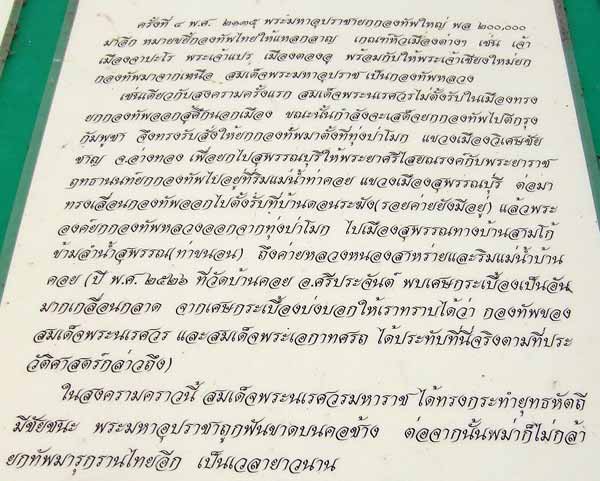 ครั้งที่ ๔ พ.ศ. ๒๑๓๕ พระมหาอุปราชายกกองทัพใหญ่ พล ๒๐๐,๐๐๐
มาอีก หมายขยี้กองทัพไทยให้แหลกลาญ เกณฑ์หัวเมืองต่างๆ เช่น เจ้า
เมืองจาปะโร พระเจ้าแปร เมืองตองอู พร้อมกับให้พระเจ้าเชียงใหม่ยก
กองทัพมาจากเหนือ สมเด็จพระมหาอุปราช เป็นกองทัพหลวง
เช่นเดียวกับสงครามครั้งแรก สมเด็จพระนเรศวรไม่ตั้งรับในเมืองทรง
ยกกองทัพออกสู้ศึกนอกเมือง ขณะนั้นกำลังจะเสด็จยกกองทัพไปตีกรุง
กัมพูชา จึงทรงรับสั่งให้ยกกองทัพมาตั้งที่ทุ่งป่าโมก แขวงเมืองวิเศษชัย
ชาญ อ.อ่างทอง เพื่อยกไปสุพรรณบุรีให้พระยาศรีไสยณรงค์กับพระยาราช
ฤทธานนท์ยกกองทัพไปอยู่ที่ริมแม่น้ำท่าคอย แขวงเมืองสุพรรณบุรี ต่อมา
ทรงเลื่อนกองทัพออกไปตั้งรับที่บ้านดอนระฆัง(รอยค่ายยังมีอยู่) แล้วพระ
องค์ยกกองทัพหลวงออกจากทุ่งป่าโมก ไปเมืองสุพรรณทางบ้านสามโก้
ข้ามลำน้ำสุพรรณ(ท่าขนอน) ถึงค่ายหลวงหนองสาหร่ายและริมแม่น้ำบ้าน
คอย (ปี พ.ศ. ๒๕๒๖ ที่วัดบ้านคอย อ.ศรีประจันต์ พบเศษกระเบื้องเป็นอัน
มากเกลื่อนกลาด จากเศษกระเบื้องบ่งบอกให้เราทราบได้ว่า กองทัพของ
สมเด็จพระนเรศวร และสมเด็จพระเอกาทศรถ ได้ประทับที่นี่จริงตามที่ประ
วัติศาสตร์กล่าวถึง)
ในสงครามคราวนี้ สมเด็จพระนเรศวรมหาราช ได้ทรงกระทำยุทธหัตถี
มีชัยชนะ พระมหาอุปราชาถูกฟันขาดบนคอช้าง ต่อจากนั้นพม่าก็ไม่กล้า
ยกทัพมารุกรานไทยอีก เป็นเวลายาวนาน